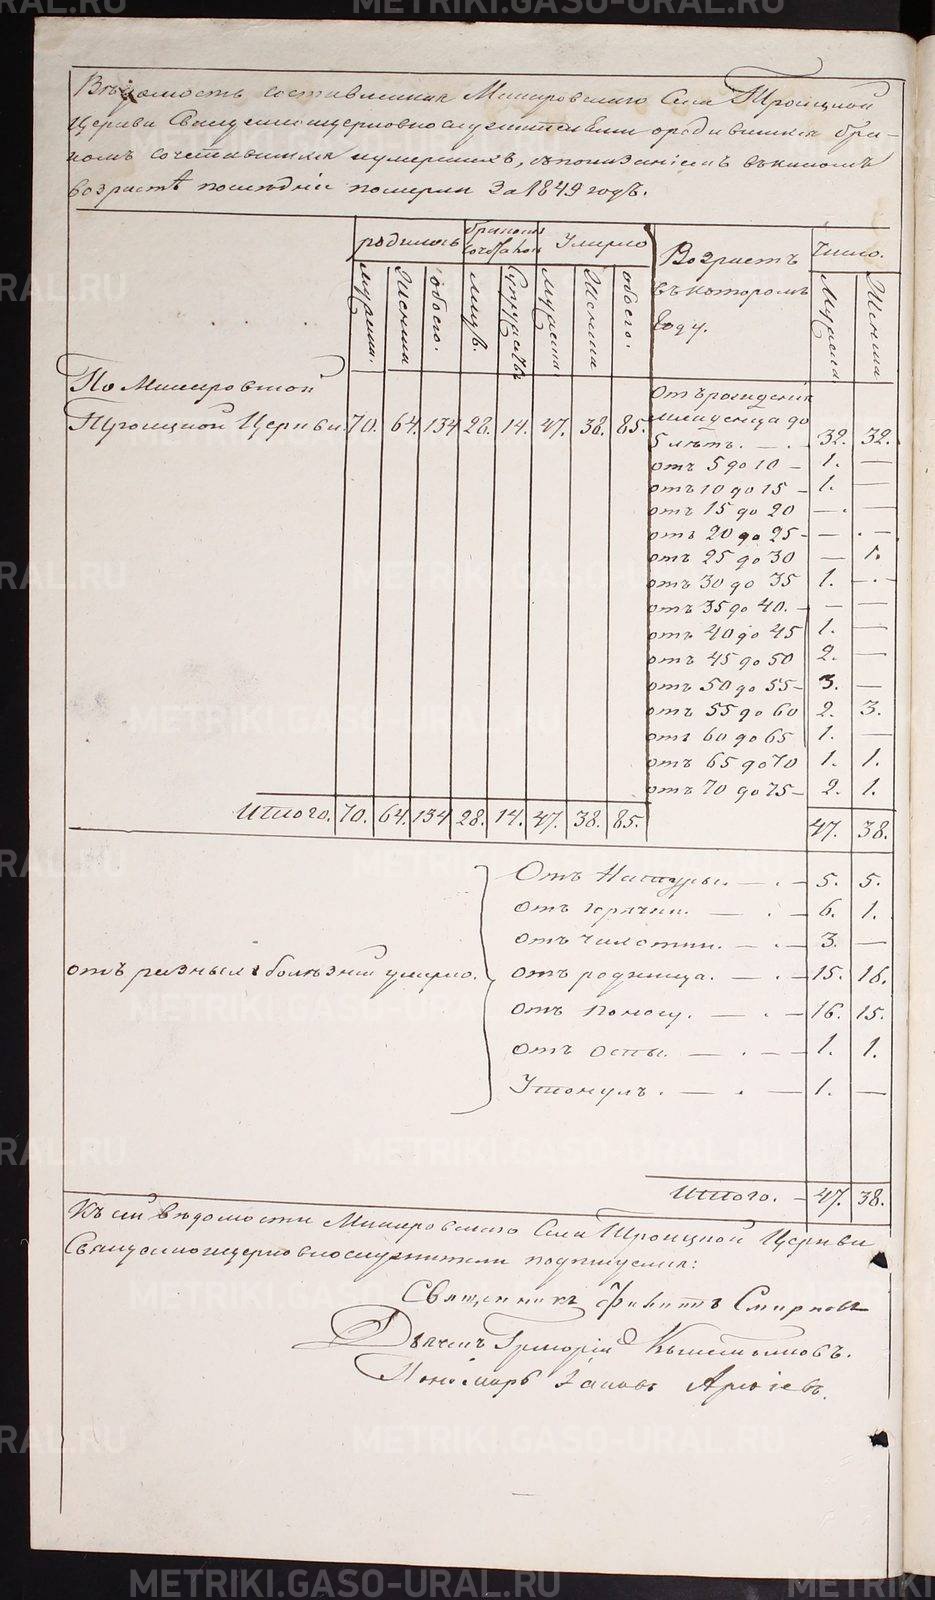 Вѣдомость составленная Села Троицкой
Церкви Священноцерковнослужителями о родившихся бра-
комъ сочетавшихся и умершихъ, съ показаніемъ въ какомъ
возрастѣ послѣдніе померли за 1849 годъ.
родилось
сочетал.
Умерло
Возрастъ
въ которомъ
году.
Число.
мужеска.
Женска
обоего.
Супружествъ
мужеска
Женска
обоего.
Мужеска
Женска
По
Троицкой Церкви. 70. 64. 134 28. 14. 47. 38. 85.
Отъ рожденія
младенца до
5 лѣтъ. — . — 32. 32.
отъ 5 до 10 — 1. —
отъ 10 до 15 — 1. —
отъ 15 до 20 — . —
отъ 20 до 25 — — . —
отъ 25 до 30 — 1.
отъ 30 до 35 1. — . —
отъ 35 до 40. — — —
отъ 40 до 45 1. —
отъ 45 до 50 2. —
отъ 50 до 55 — 3. —
отъ 55 до 60 2. 3.
отъ 60 до 65 1. —
отъ 65 до 70 1. 1.
отъ 70 до 75 — 2. 1.
Итого. 70. 64. 134 28. 14. 47. 38. 85. 47. 38.
отъ разныхъ болѣзней умерло.
Отъ Натуры. — . — 5. 5.
отъ горячки. — . — 6. 1.
отъ чахотки. — . — 3. —
отъ родимца. — . — 15. 16.
отъ поносу. — . — 16. 15.
отъ оспы. — . — 1. 1.
Утонулъ. — . — 1. —
Итого. — 47. 38.
Къ сей вѣдомости Села Троицкой Церкви
Священноцерковнослужители подписуемся:
Священникъ Смирновъ
Дьячекъ Григорій
Пономарь
METRIKI.GASO-URAL.RU